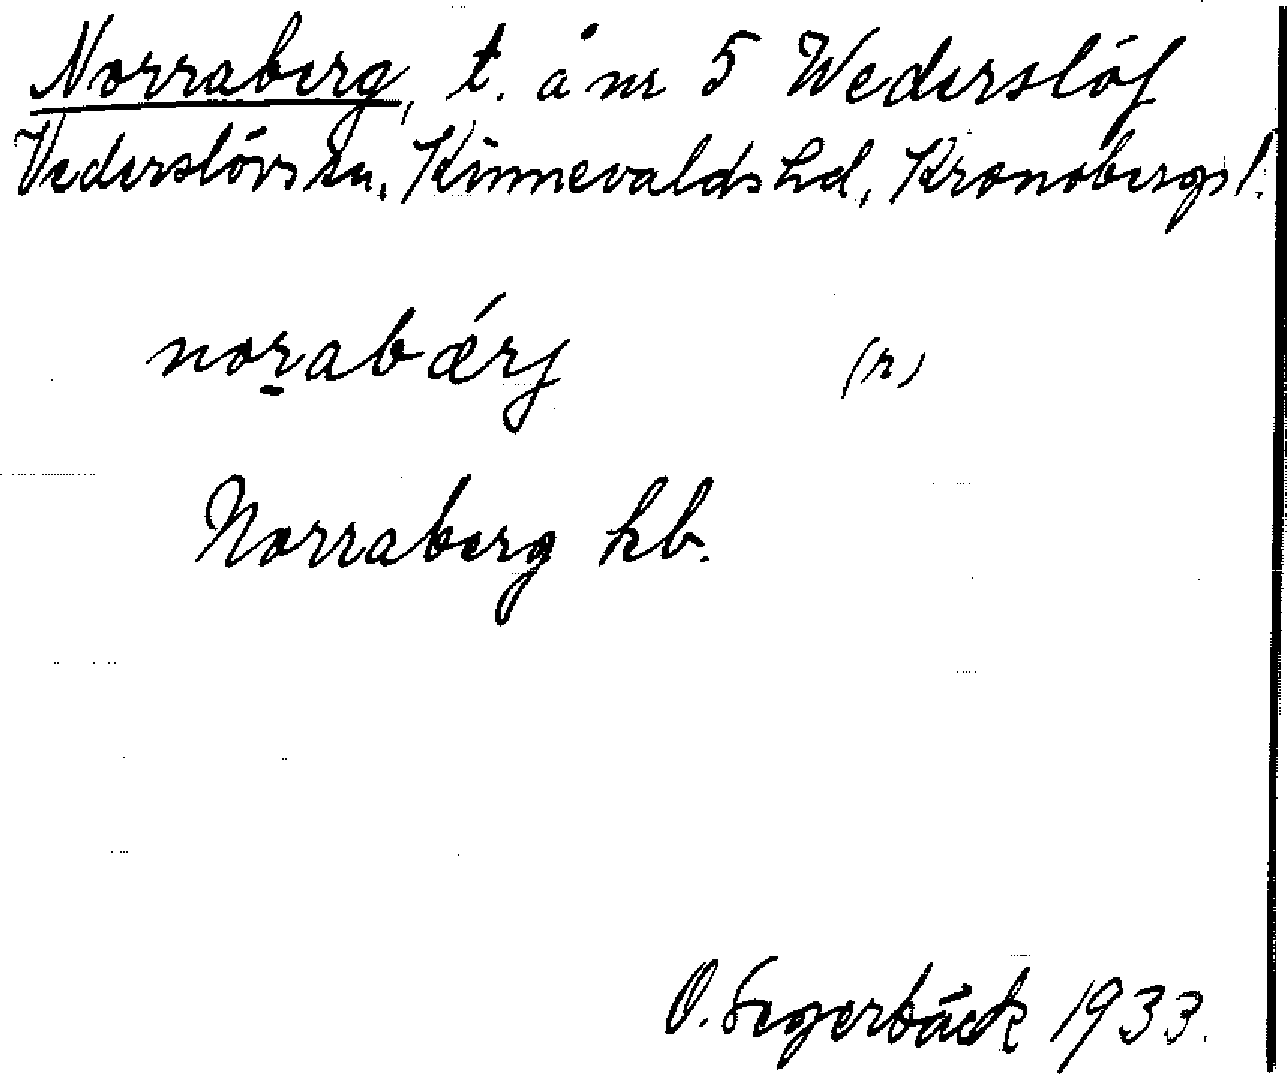 Norraberg, t. å nr 5 Wederslöf
Vederslövs sn, Kinnevalds hd, Kronobergs l.
noṟabǽrj (n)
Norraberg hb.
O. Segerbäck 1933.